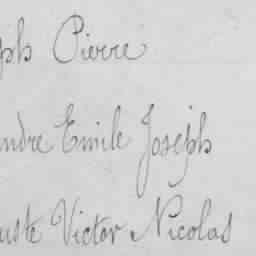 ph Pierre
andre Emile Joseph
uste Victor Nicolas